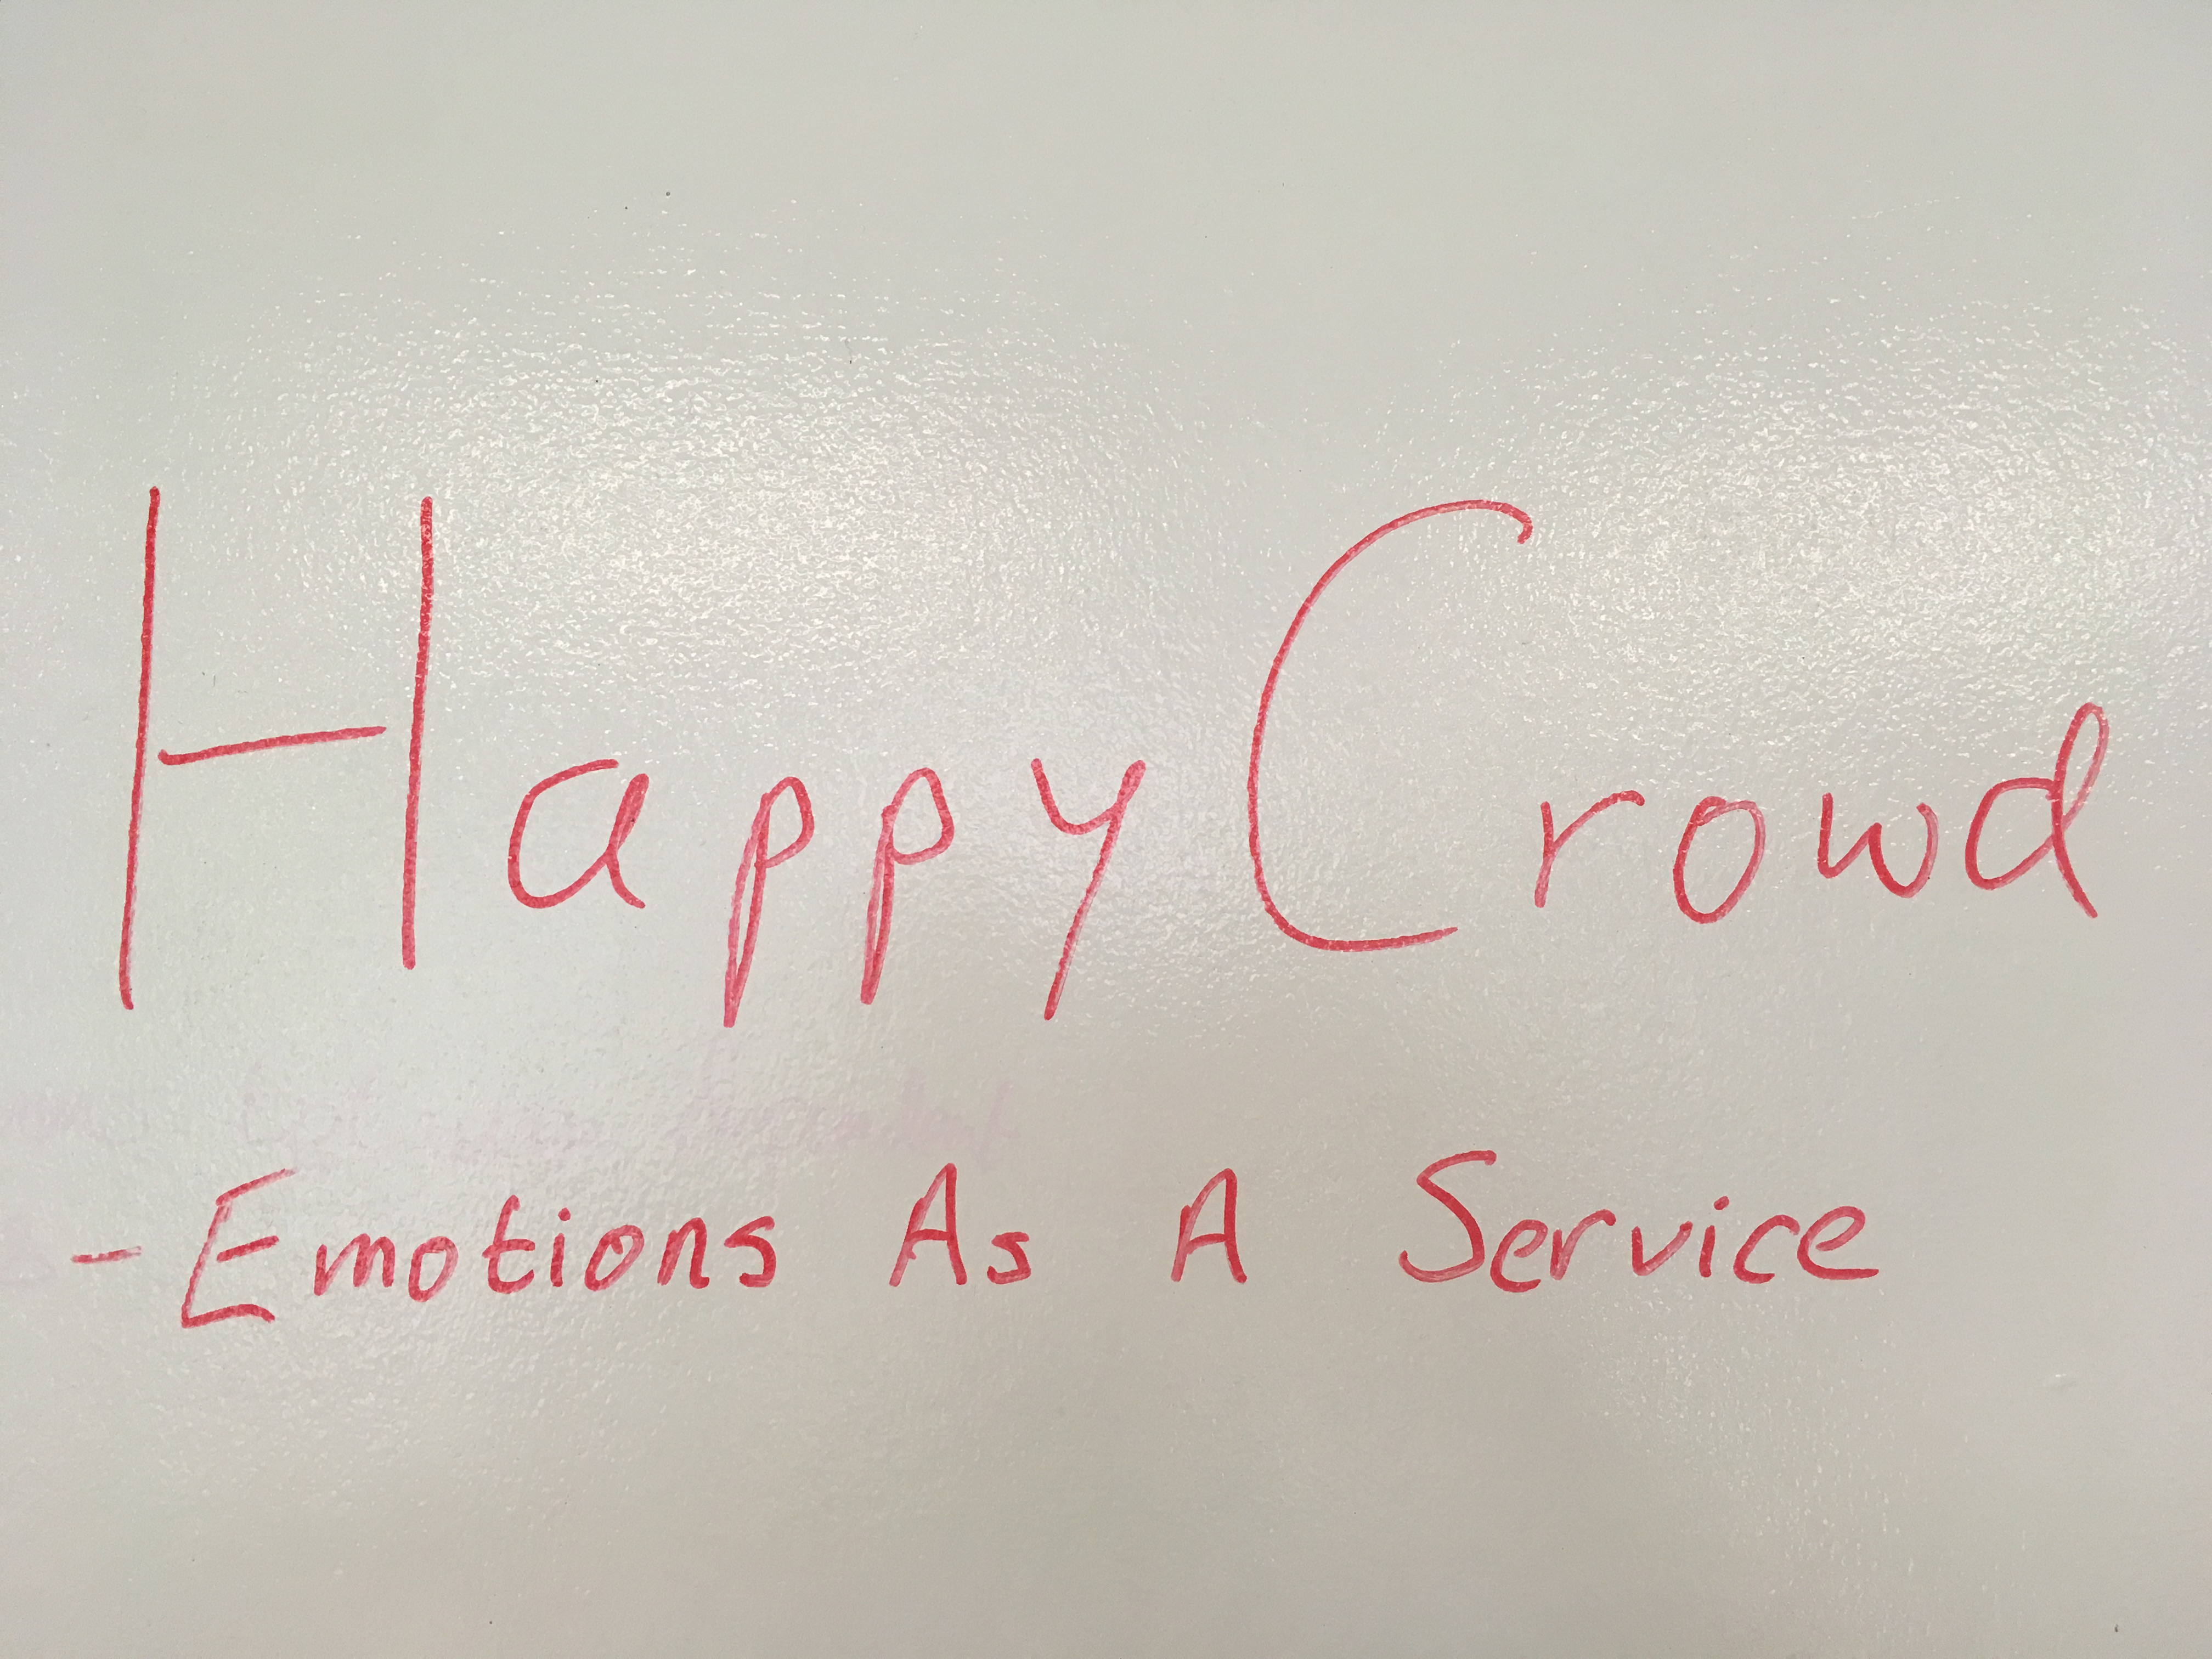 HappyCrowd
- Emotions As A Service